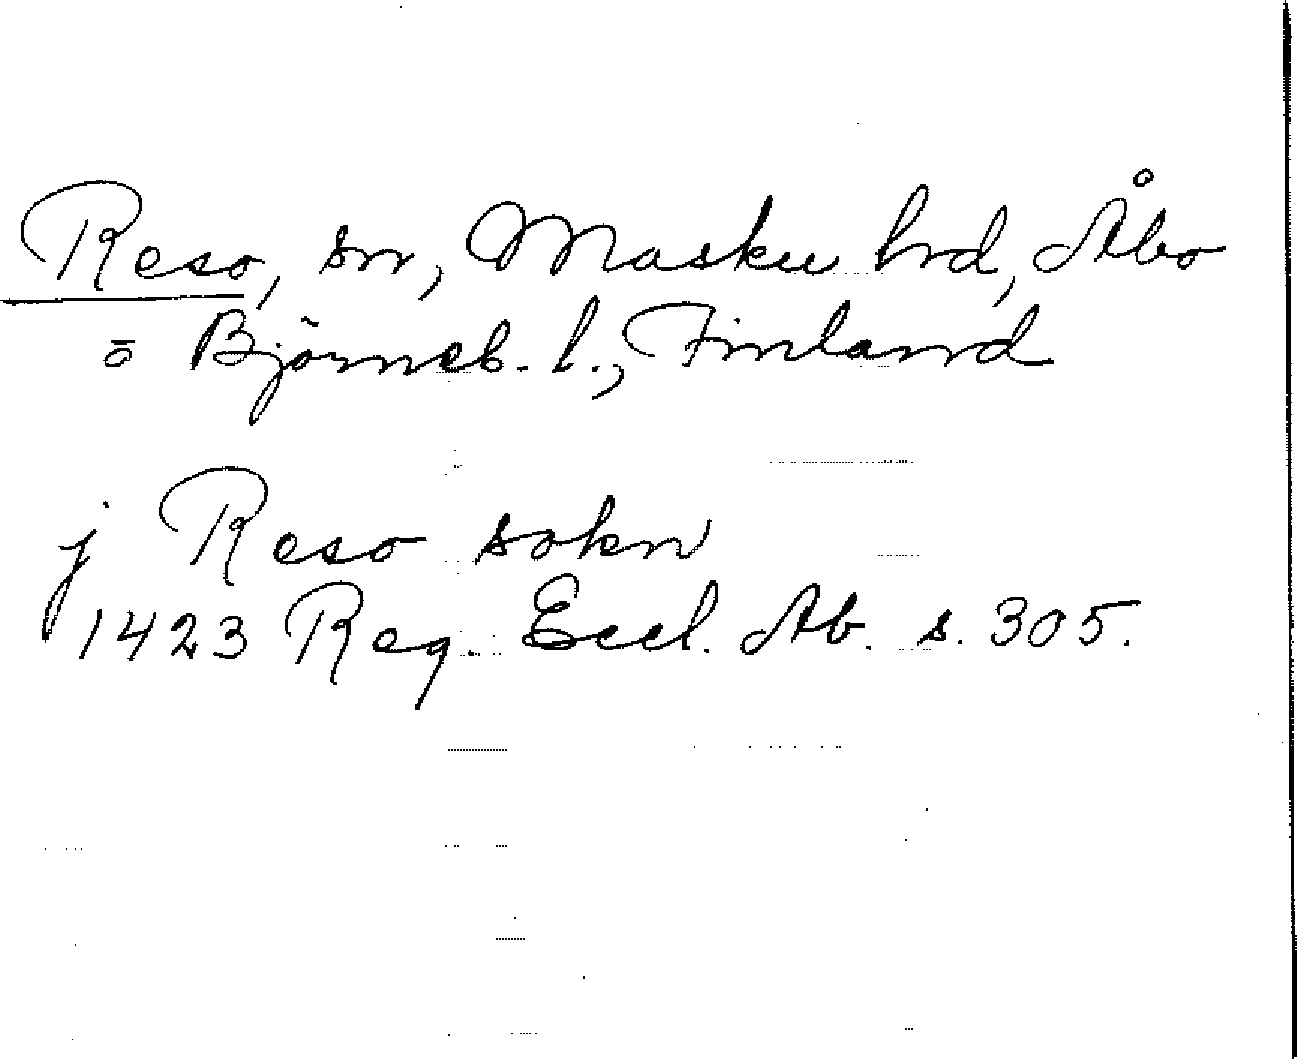 Reso, sn, Masku hrd, Åbo
o Björneb. l., Finland
j Reso sokn
1423 Reg. Eccl. Ab. s. 305.